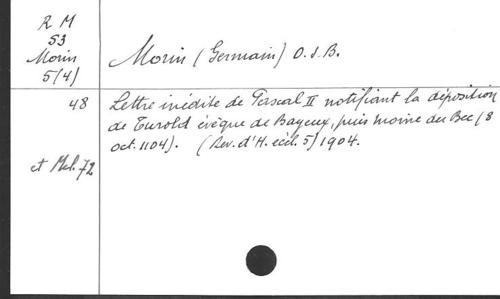 R M
53
Morin
5(4)
Morin (Germain) O.S.B.
48
Lettre inédite de Pascal II notifiant la déposition
de Turold évêque de Bayeux, puis moine du Bec (8
oct. 1104). (Rev. d'H. eccl. 5) 1904.
et Mel. 72